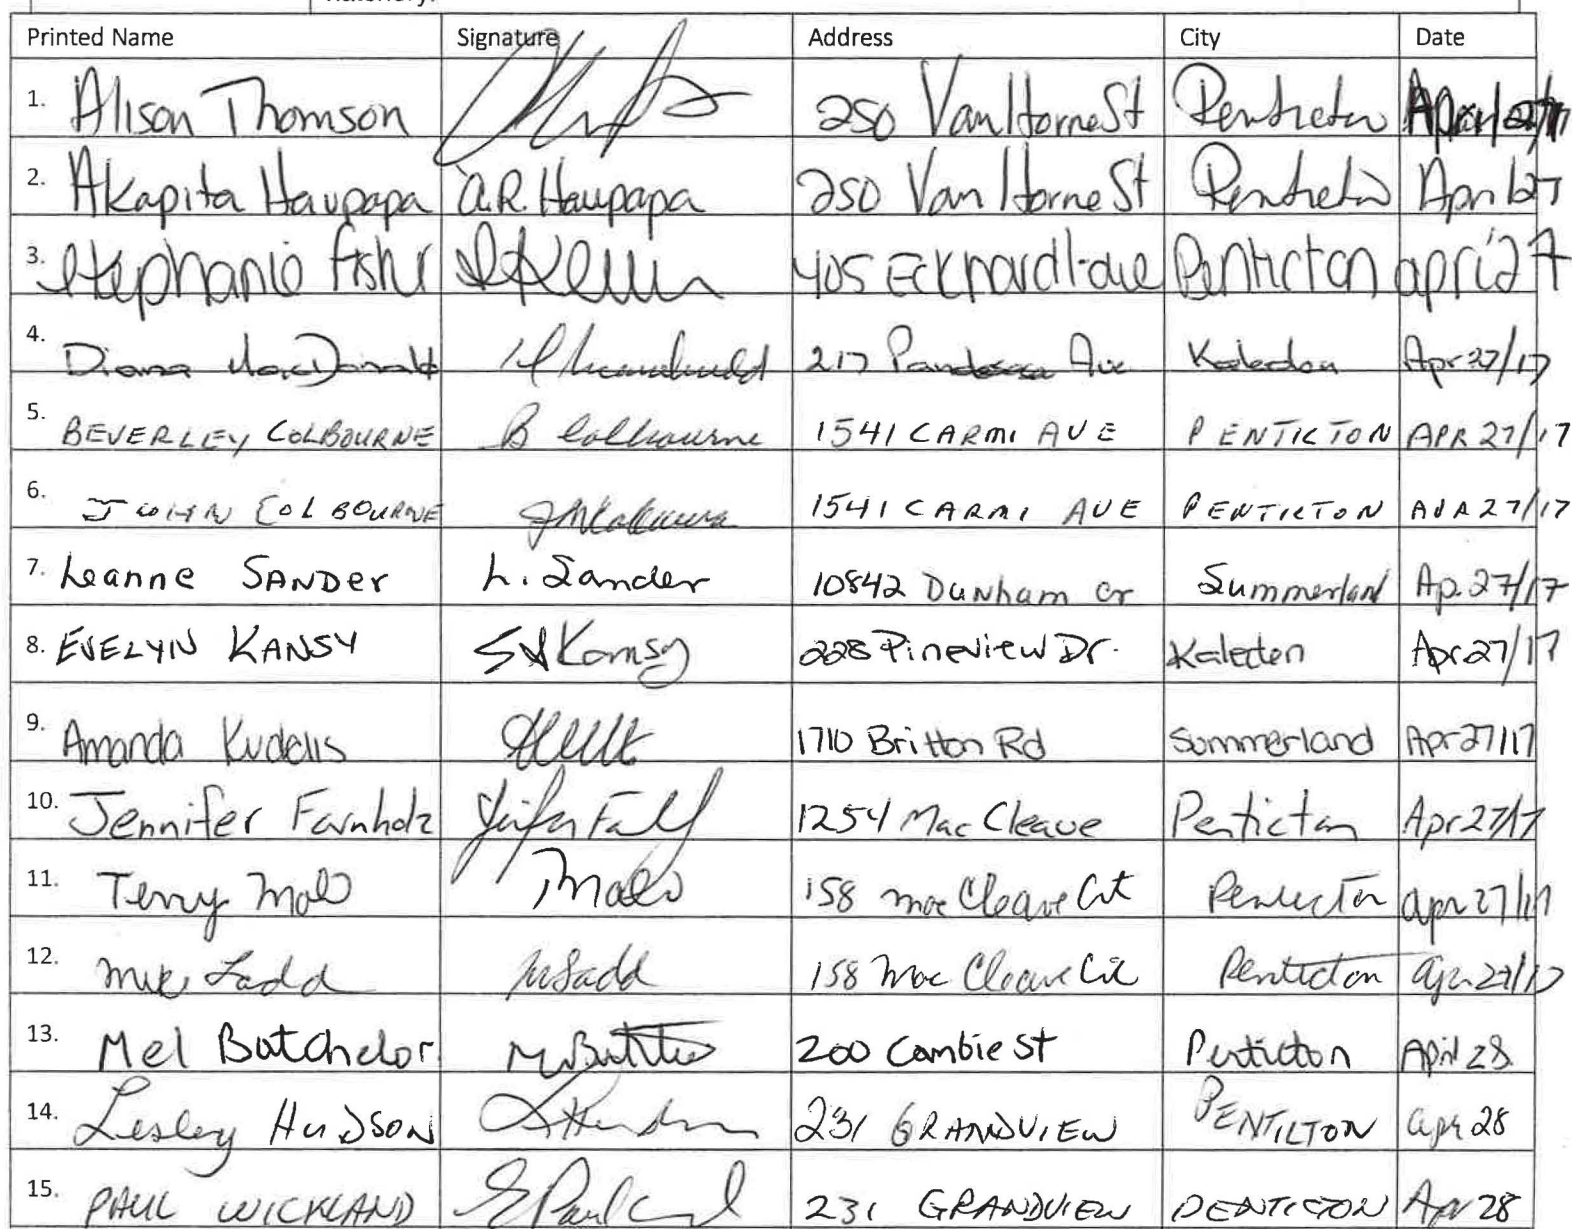 hatchery.
Printed Name Signature Address City Date
1. Alison Thomson 250 Van Horne St Penticton April 27/17
2. Akapita Haupapa A.R. Haupapa 250 Van Horne St Penticton April 27
3. Stephanie Fisher 405 Eckhardt ave Penticton april 27
4. Diana MacDonald 217 Pandosa Ave Kaleden Apr 27/17
5. BEVERLEY COLBOURNE B Colbourne 1541 CARMI AVE PENTICTON APR 27/17
6. JOHN COLBOURNE 1541 CARMI AVE PENTICTON APR 27/17
7. Leanne SANDer L. Sander 10842 Dunham cr Summerland Ap. 27/17
8. EVELYN KANSY Kansy 228 Pineview Dr. Kaleden Apr 27/17
9. Amanda Kudelis 1710 Britton Rd Summerland Apr 27/17
10. Jennifer Farnholz 1254 MacCleave Penticton Apr 27/17
11. Terry Malo TMalo 158 macCleave Crt Penticton apr 27/17
12. Mike Ladd MLadd 158 MacCleave Penticton apr 27/17
13. Mel Batchelor 200 Cambie St Penticton April 28
14. Lesley HUDSON 231 GRANDVIEW PENTICTON apr 28
15. PAUL WICKLAND 231 GRANDVIEW PENTICTON Apr 28